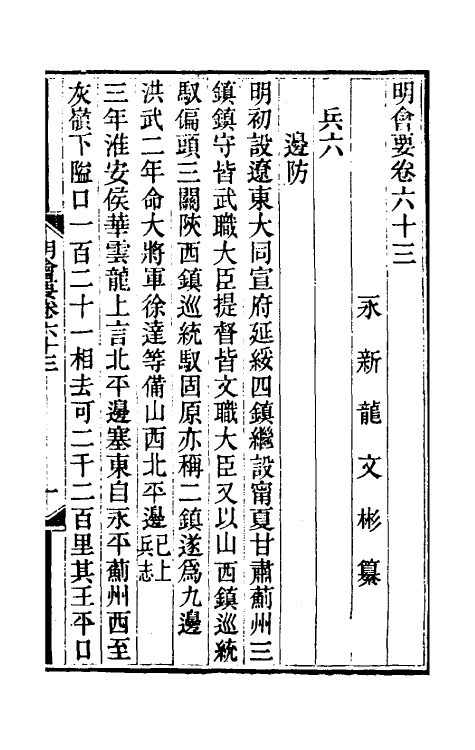 明會要卷六十三
永新龍文彬纂
兵六
邊防
明初設遼東大同宣府延綏四鎮繼設甯夏甘肅薊州三
鎮鎮守皆武職大臣提督皆文職大臣又以山西鎮巡統
馭偏頭三關陝西鎮巡統馭固原亦稱二鎮遂爲九邊
洪武二年命大將軍徐達等備山西北平邊已上兵志
三年淮安侯華雲龍上言北平邊塞東自永平薊州西至
灰嶺下隘口一百二十一相去可二千二百里其王平口
明會要卷六十三
一